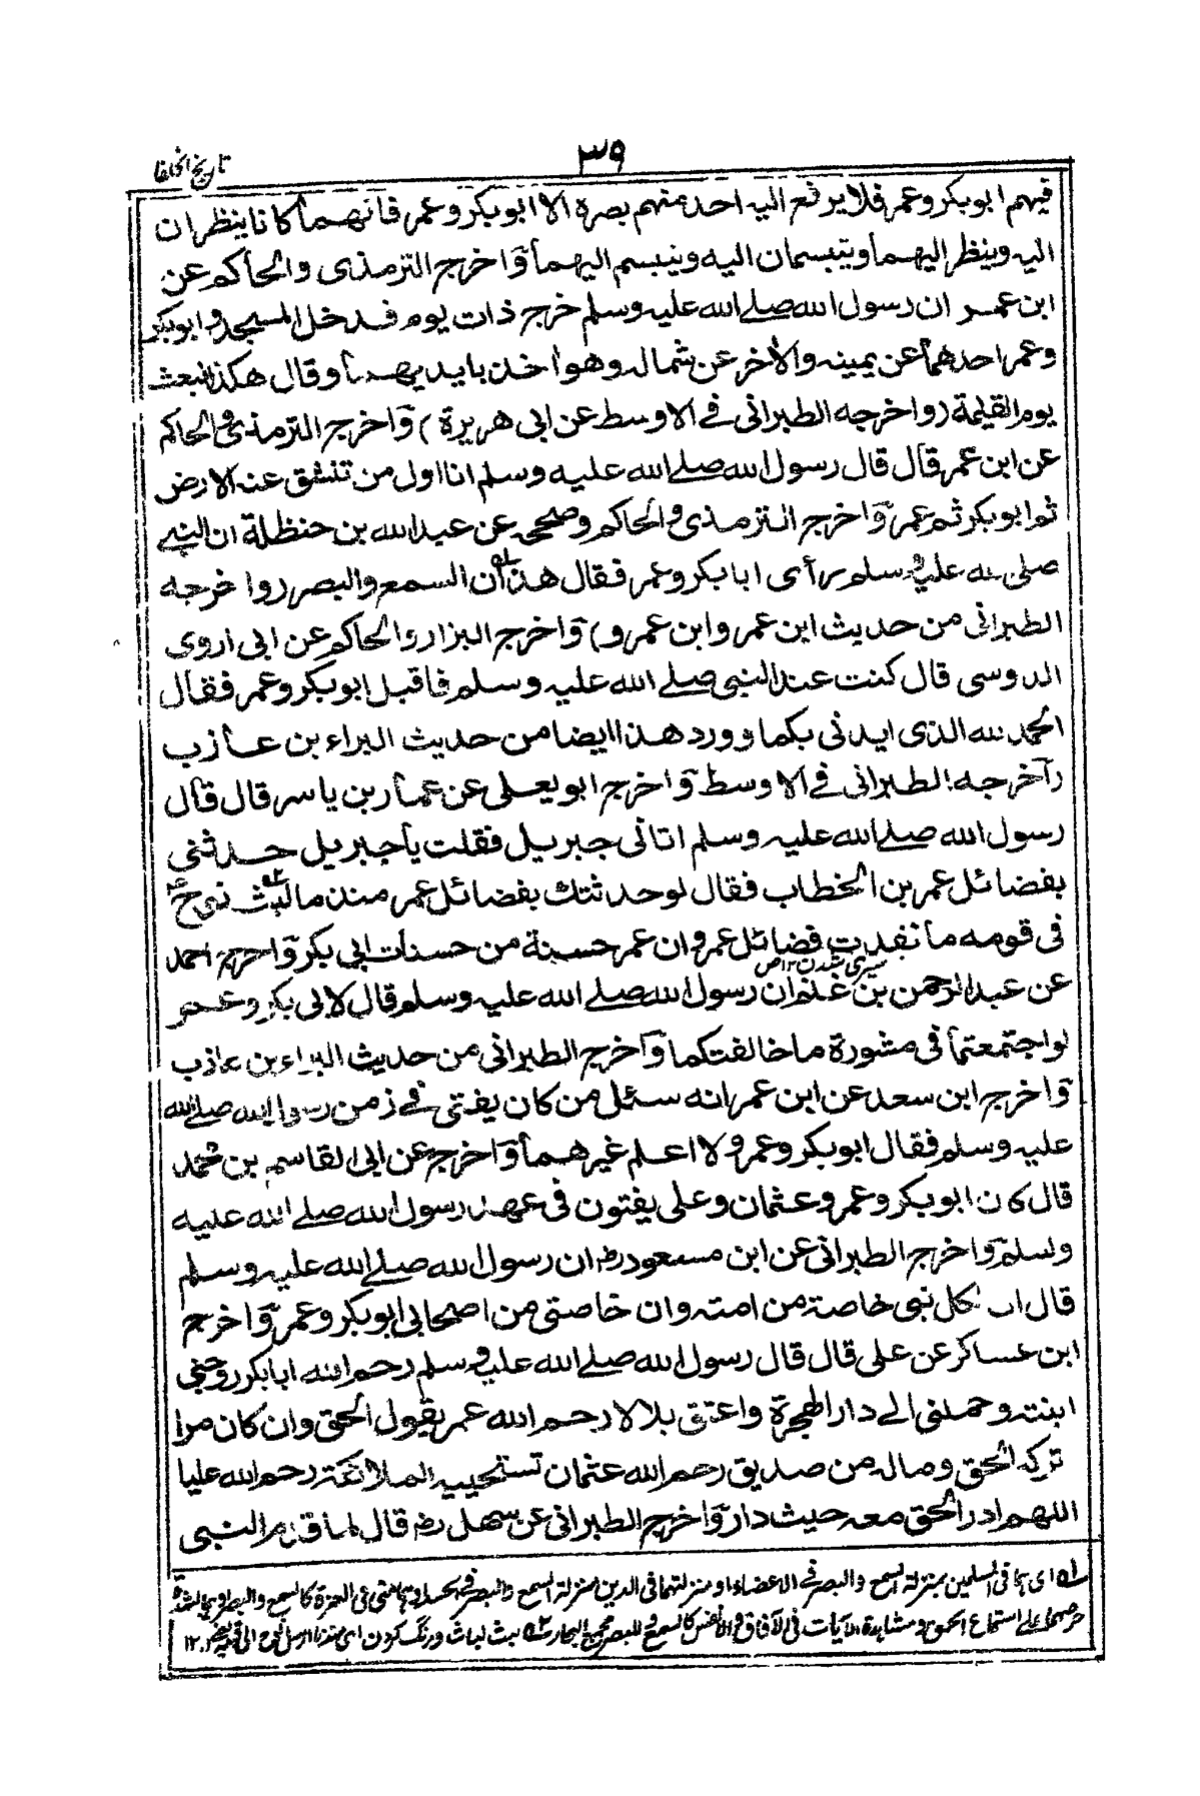 تاريخ الخلفا
٣٩
فيهم ابوبكر وعمر فلا يرفع اليه احد منهم بصره الا ابوبكر وعمر فانهما كانا ينظران
اليه وينظر اليهما ويتبسمان اليه ويتبسم اليهما وَاخرج الترمذى والحاكم عن
ابن عمر ان رسول الله صلے الله عليه وسلم خرج ذات يوم فدخل المسجد وابوبكر
وعمر احدهما عن يمينه والآخر عن شماله وهو اخذ بايديهما وقال هكذا نبعث
يوم القيٰمة (واخرجه الطبرانى فے الاوسط عن ابى هريرة) وَاخرج الترمذى والحاكم
عن ابن عمر قال قال رسول الله صلے الله عليه وسلم انا اول من تنشق عنه الارض
ثم ابوبكر ثم عمر وَاخرج الترمذى والحاكم وصححه عن عبدالله بن حنظلة ان النبے
صلى لله عليه وسلم رأى ابابكر وعمر فقال هذان السمع والبصر (واخرجه
الطبرانى من حديث ابن عمر وابن عمرو) وَاخرج البزار والحاكم عن ابى اروى
الدوسى قال كنت عند النبى صلے الله عليه وسلم فاقبل ابوبكر وعمر فقال
الحمد لله الذى ايدنى بكما وورد هذا ايضا من حديث البراء بن عازب
(آخرجه الطبرانى فے الاوسط وَاخرج ابويعلى عن عمار بن ياسر قال قال
رسول الله صلے الله عليه وسلم اتانى جبريل فقلت ياجبريل حدثنى
بفضائل عمر بن الخطاب فقال لو حدثتك بفضائل عمر منذ ما لبث نوح
فى قومه ما نفدت فضائل عمر وان عمر حسنة من حسنات ابى بكر وَاخرج احمد
سپرى شدن ١٢ص
عن عبدالرحمن بن غنم ان رسول الله صلے الله عليه وسلم قال لابى بكر وعمر
لواجتمعتما فى مشورة ما خالفتكما وَاخرج الطبرانى من حديث البراء بن عازب
وَاخرج ابن سعد عن ابن عمر انه سئل من كان يفتى فے زمن رسول الله صلے الله
عليه وسلم فقال ابوبكر وعمر ولا اعلم غيرهما وَاخرج عن ابى القاسم بن محمد
قال كان ابوبكر وعمر وعثمان وعلى يفتون فى عهد رسول الله صلے الله عليه
وسلم وَاخرج الطبرانى عن ابن مسعود رضہ ان رسول الله صلے الله عليه وسلم
قال ان لكل نبى خاصة من امته وان خاصتى من اصحابى ابوبكر وعمر وَاخرج
ابن عساكر عن على قال قال رسول الله صلے الله عليه وسلم رحم الله ابابكر زوجنى
ابنته وحملنى الے دار الهجرة واعتق بلالا رحم الله عمر يقول الحق وان كان مرا
تركه الحق وماله من صديق رحم الله عثمان تستحييه الملائكة رحم الله عليا
اللهم ادر الحق معه حيث دار وَاخرج الطبرانى عن سهل رضہ قال لما قدم النبى
له اى هما فى المسلمين بمنزلة السمع والبصر فے الاعضاء او منزلتهما فى الدين منزلة السمع والبصر فے الجسد او هما منى فى العزة كالسمع والبصر او هما لشدة
حرصهما على استماع الحق ومشاهدة الآيات فى الآفاق والانفس كالسمع والبصر مجمع البحار